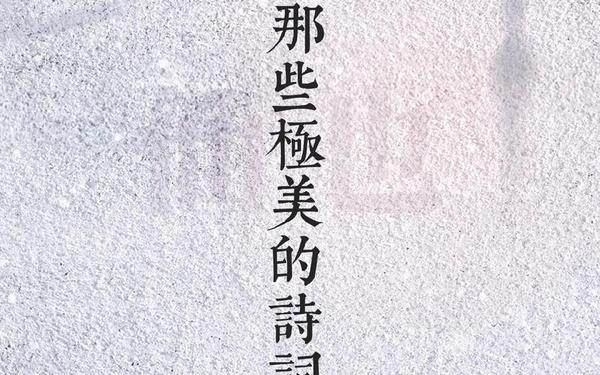 那些極美的詩詞